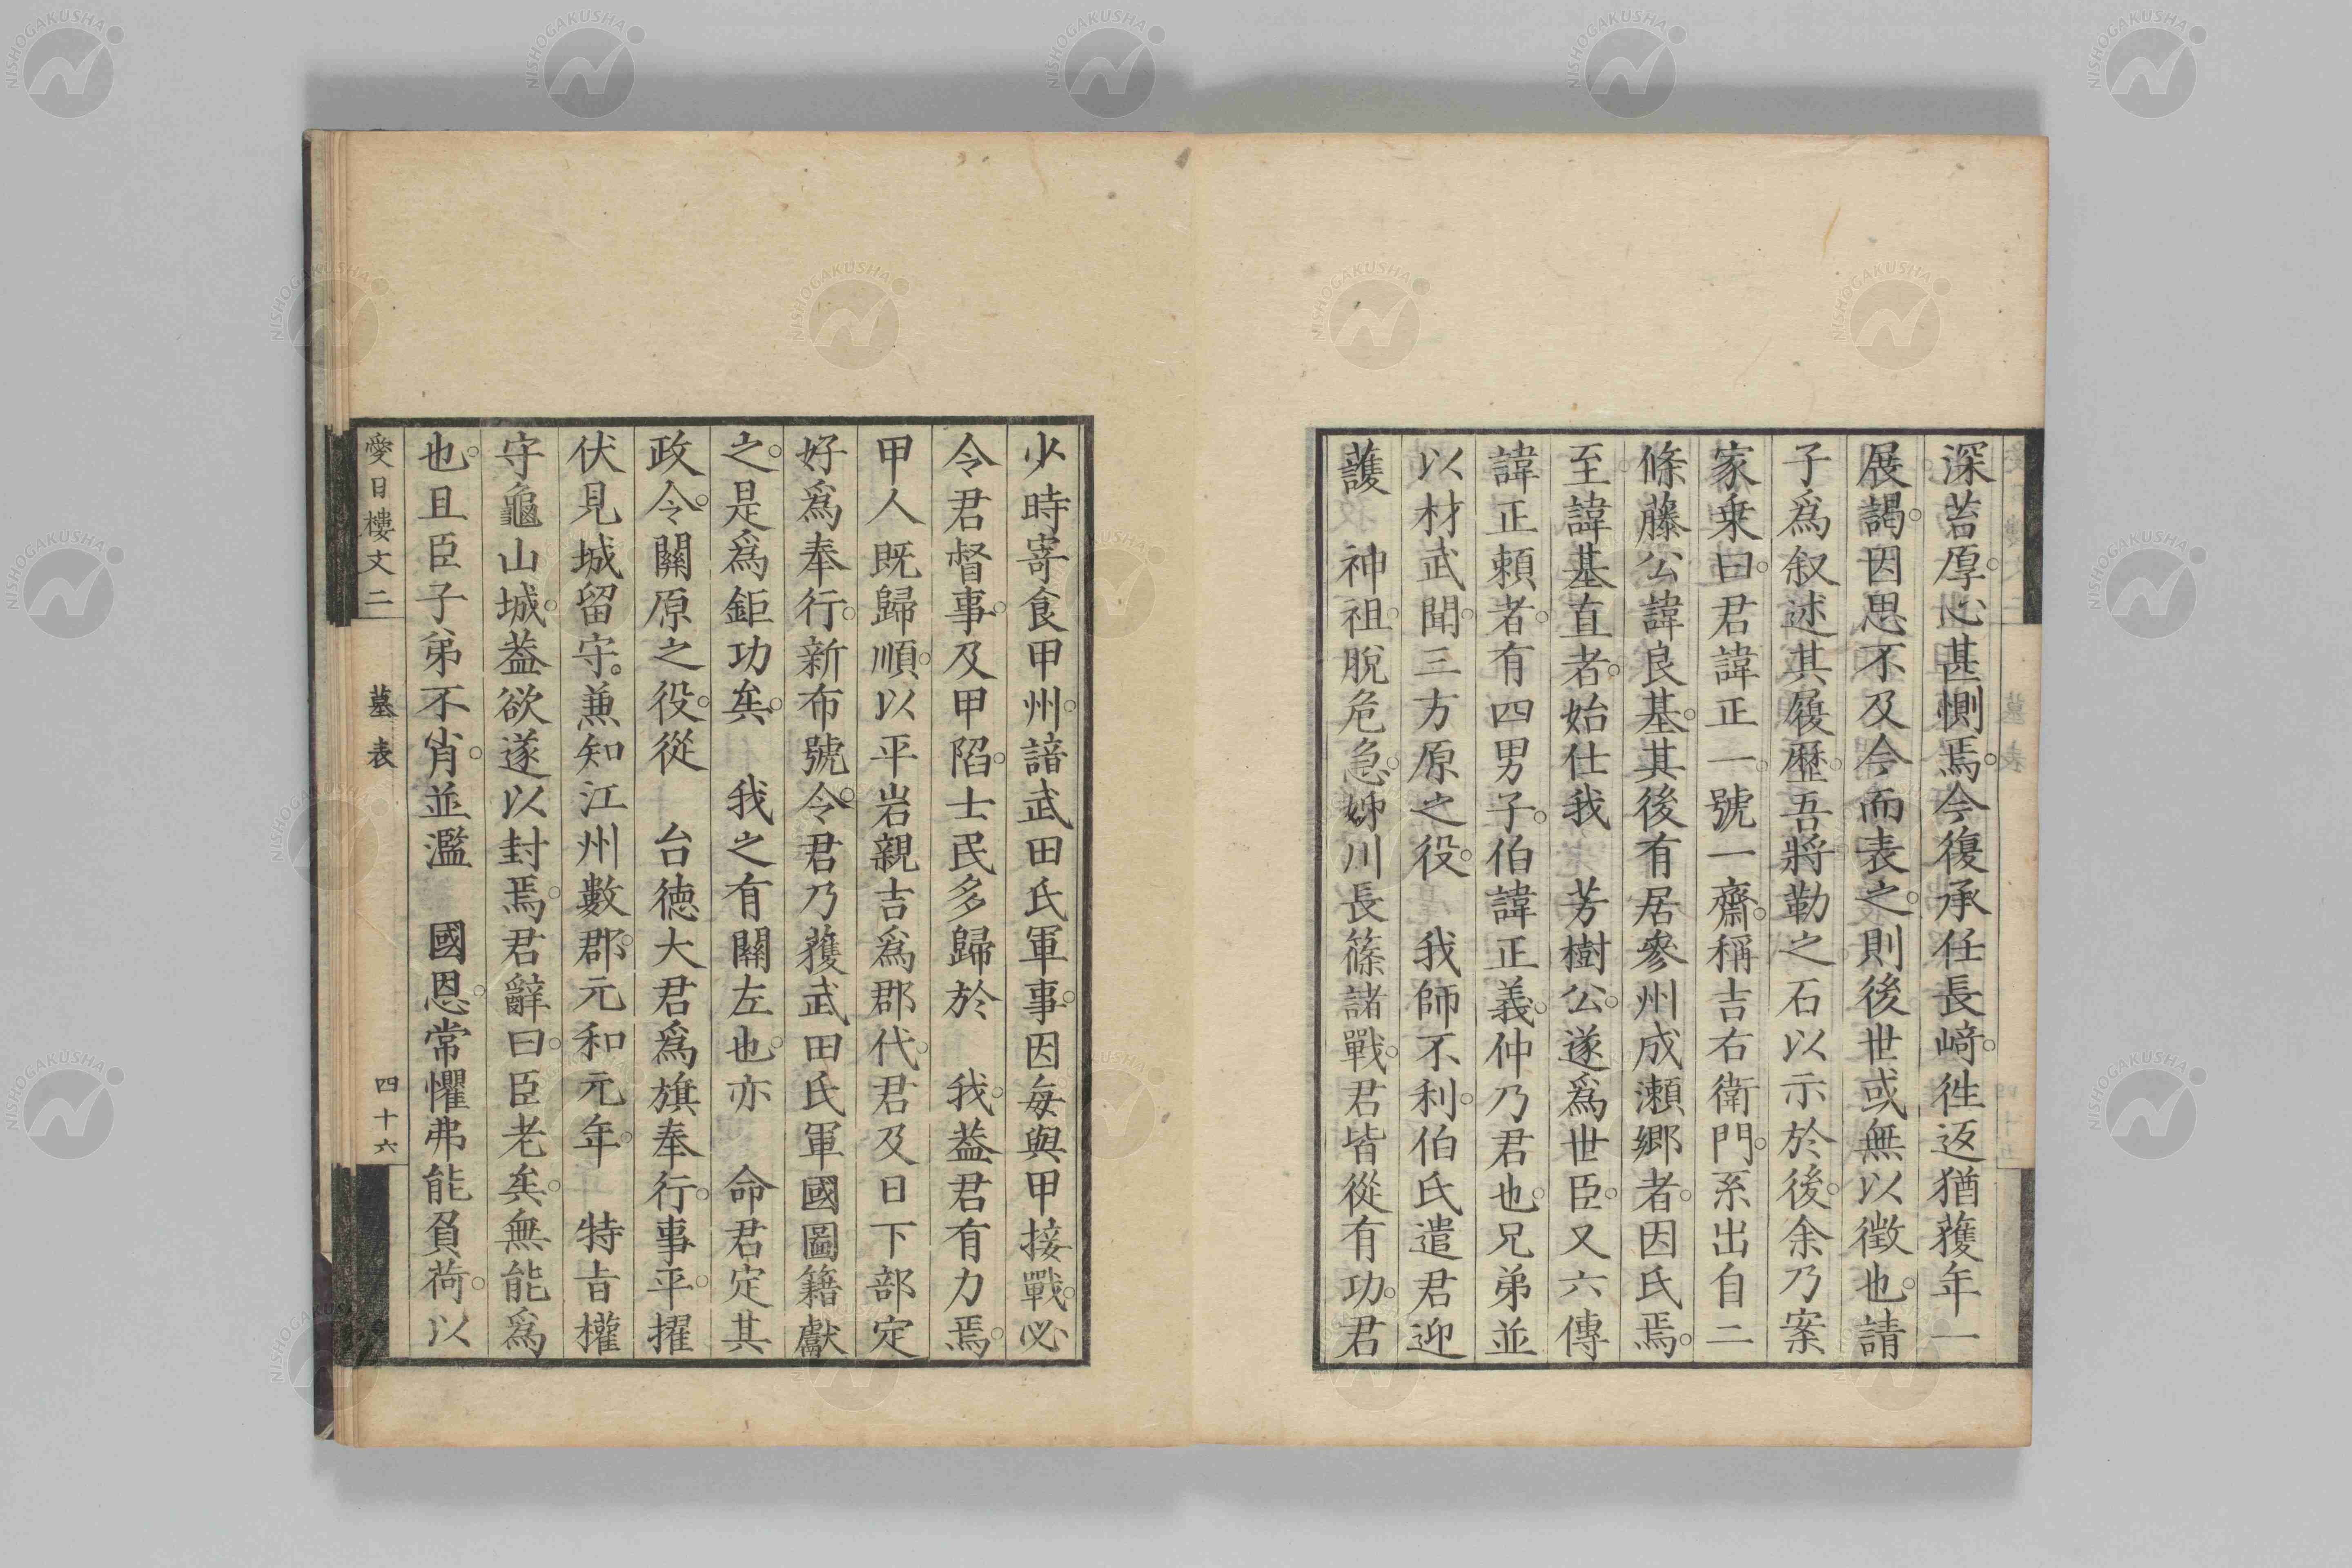 深苔厚。心甚惻焉。今復承任長﨑。徃返猶蒦年一
展謁。因思不及今而表之。則後世或無以徵也。請
子爲叙述其履歷。吾將勒之石以示於後。余乃案
家乗曰。君諱正一。號一齋。稱吉右衛門。系出自二
條藤公諱良基。其後有居參州成瀬郷者。因氏焉。
至諱基直者。始仕我　芳樹公。遂爲世臣。又六傳
諱正頼者。有四男子。伯諱正義。仲乃君也。兄弟並
以材武聞。三方原之役。　我師不利。伯氏遣君迎
護　神祖。脫危急。姊川長篠諸戰。君皆從有功。君
少時寄食甲州。諳武田氏軍事。因每與甲接戰。必
令君督事。及甲陷。士民多歸於　我。葢君有力焉。
甲人既歸順。以平岩親吉爲郡代。君及日下部定
好爲奉行。新布號令。君乃蒦武田氏軍國圖籍獻
之。是爲鉅功矣。　我之有關左也。亦　命君定其
政令。關原之役。從　台徳大君爲旗奉行。事平。擢
伏見城留守。兼知江州數郡。元和元年。　特旨權
守龜山城。葢欲遂以封焉。君辭曰。臣老矣。無能爲
也。且臣子弟不肖。並濫　國恩。常懼弗能負荷。以
愛日樓文二　墓表　四十六